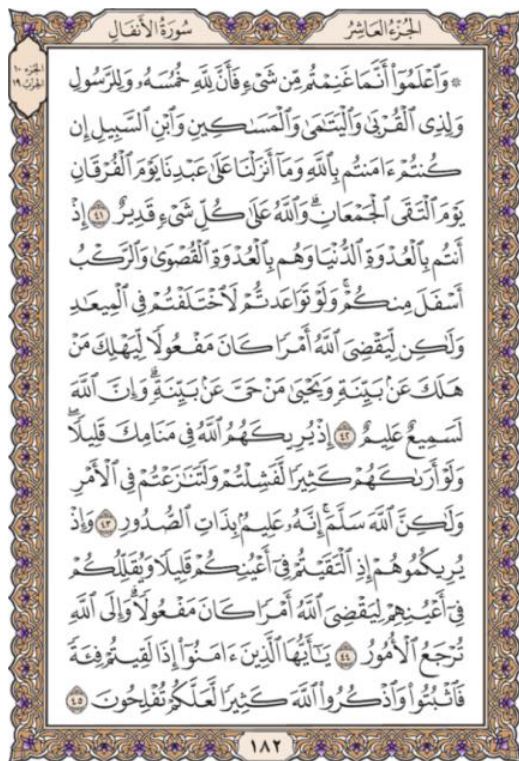 الجزء العاشر
سورة الأنفال
الجزء ١٠
الحزب ١٩
۞ وَٱعۡلَمُوٓاْ أَنَّمَا غَنِمۡتُم مِّن شَيۡءٖ فَأَنَّ لِلَّهِ خُمُسَهُۥ وَلِلرَّسُولِ
وَلِذِي ٱلۡقُرۡبَىٰ وَٱلۡيَتَٰمَىٰ وَٱلۡمَسَٰكِينِ وَٱبۡنِ ٱلسَّبِيلِ إِن
كُنتُمۡ ءَامَنتُم بِٱللَّهِ وَمَآ أَنزَلۡنَا عَلَىٰ عَبۡدِنَا يَوۡمَ ٱلۡفُرۡقَانِ
يَوۡمَ ٱلۡتَقَى ٱلۡجَمۡعَانِۗ وَٱللَّهُ عَلَىٰ كُلِّ شَيۡءٖ قَدِيرٌ ٤١ إِذۡ
أَنتُم بِٱلۡعُدۡوَةِ ٱلدُّنۡيَا وَهُم بِٱلۡعُدۡوَةِ ٱلۡقُصۡوَىٰ وَٱلرَّكۡبُ
أَسۡفَلَ مِنكُمۡۚ وَلَوۡ تَوَاعَدتُّمۡ لَٱخۡتَلَفۡتُمۡ فِي ٱلۡمِيعَٰدِ
وَلَٰكِن لِّيَقۡضِيَ ٱللَّهُ أَمۡرٗا كَانَ مَفۡعُولٗا لِّيَهۡلِكَ مَنۡ
هَلَكَ عَنۢ بَيِّنَةٖ وَيَحۡيَىٰ مَنۡ حَيَّ عَنۢ بَيِّنَةٖۗ وَإِنَّ ٱللَّهَ
لَسَمِيعٌ عَلِيمٌ ٤٢ إِذۡ يُرِيكَهُمُ ٱللَّهُ فِي مَنَامِكَ قَلِيلٗاۖ
وَلَوۡ أَرَىٰكَهُمۡ كَثِيرٗا لَّفَشِلۡتُمۡ وَلَتَنَٰزَعۡتُمۡ فِي ٱلۡأَمۡرِ
وَلَٰكِنَّ ٱللَّهَ سَلَّمَۚ إِنَّهُۥ عَلِيمُۢ بِذَاتِ ٱلصُّدُورِ ٤٣ وَإِذۡ
يُرِيكُمُوهُمۡ إِذِ ٱلۡتَقَيۡتُمۡ فِيٓ أَعۡيُنِكُمۡ قَلِيلٗا وَيُقَلِّلُكُمۡ
فِيٓ أَعۡيُنِهِمۡ لِيَقۡضِيَ ٱللَّهُ أَمۡرٗا كَانَ مَفۡعُولٗاۗ وَإِلَى ٱللَّهِ
تُرۡجَعُ ٱلۡأُمُورُ ٤٤ يَٰٓأَيُّهَا ٱلَّذِينَ ءَامَنُوٓاْ إِذَا لَقِيتُمۡ فِئَةٗ
فَٱثۡبُتُواْ وَٱذۡكُرُواْ ٱللَّهَ كَثِيرٗا لَّعَلَّكُمۡ تُفۡلِحُونَ ٤٥
١٨٢